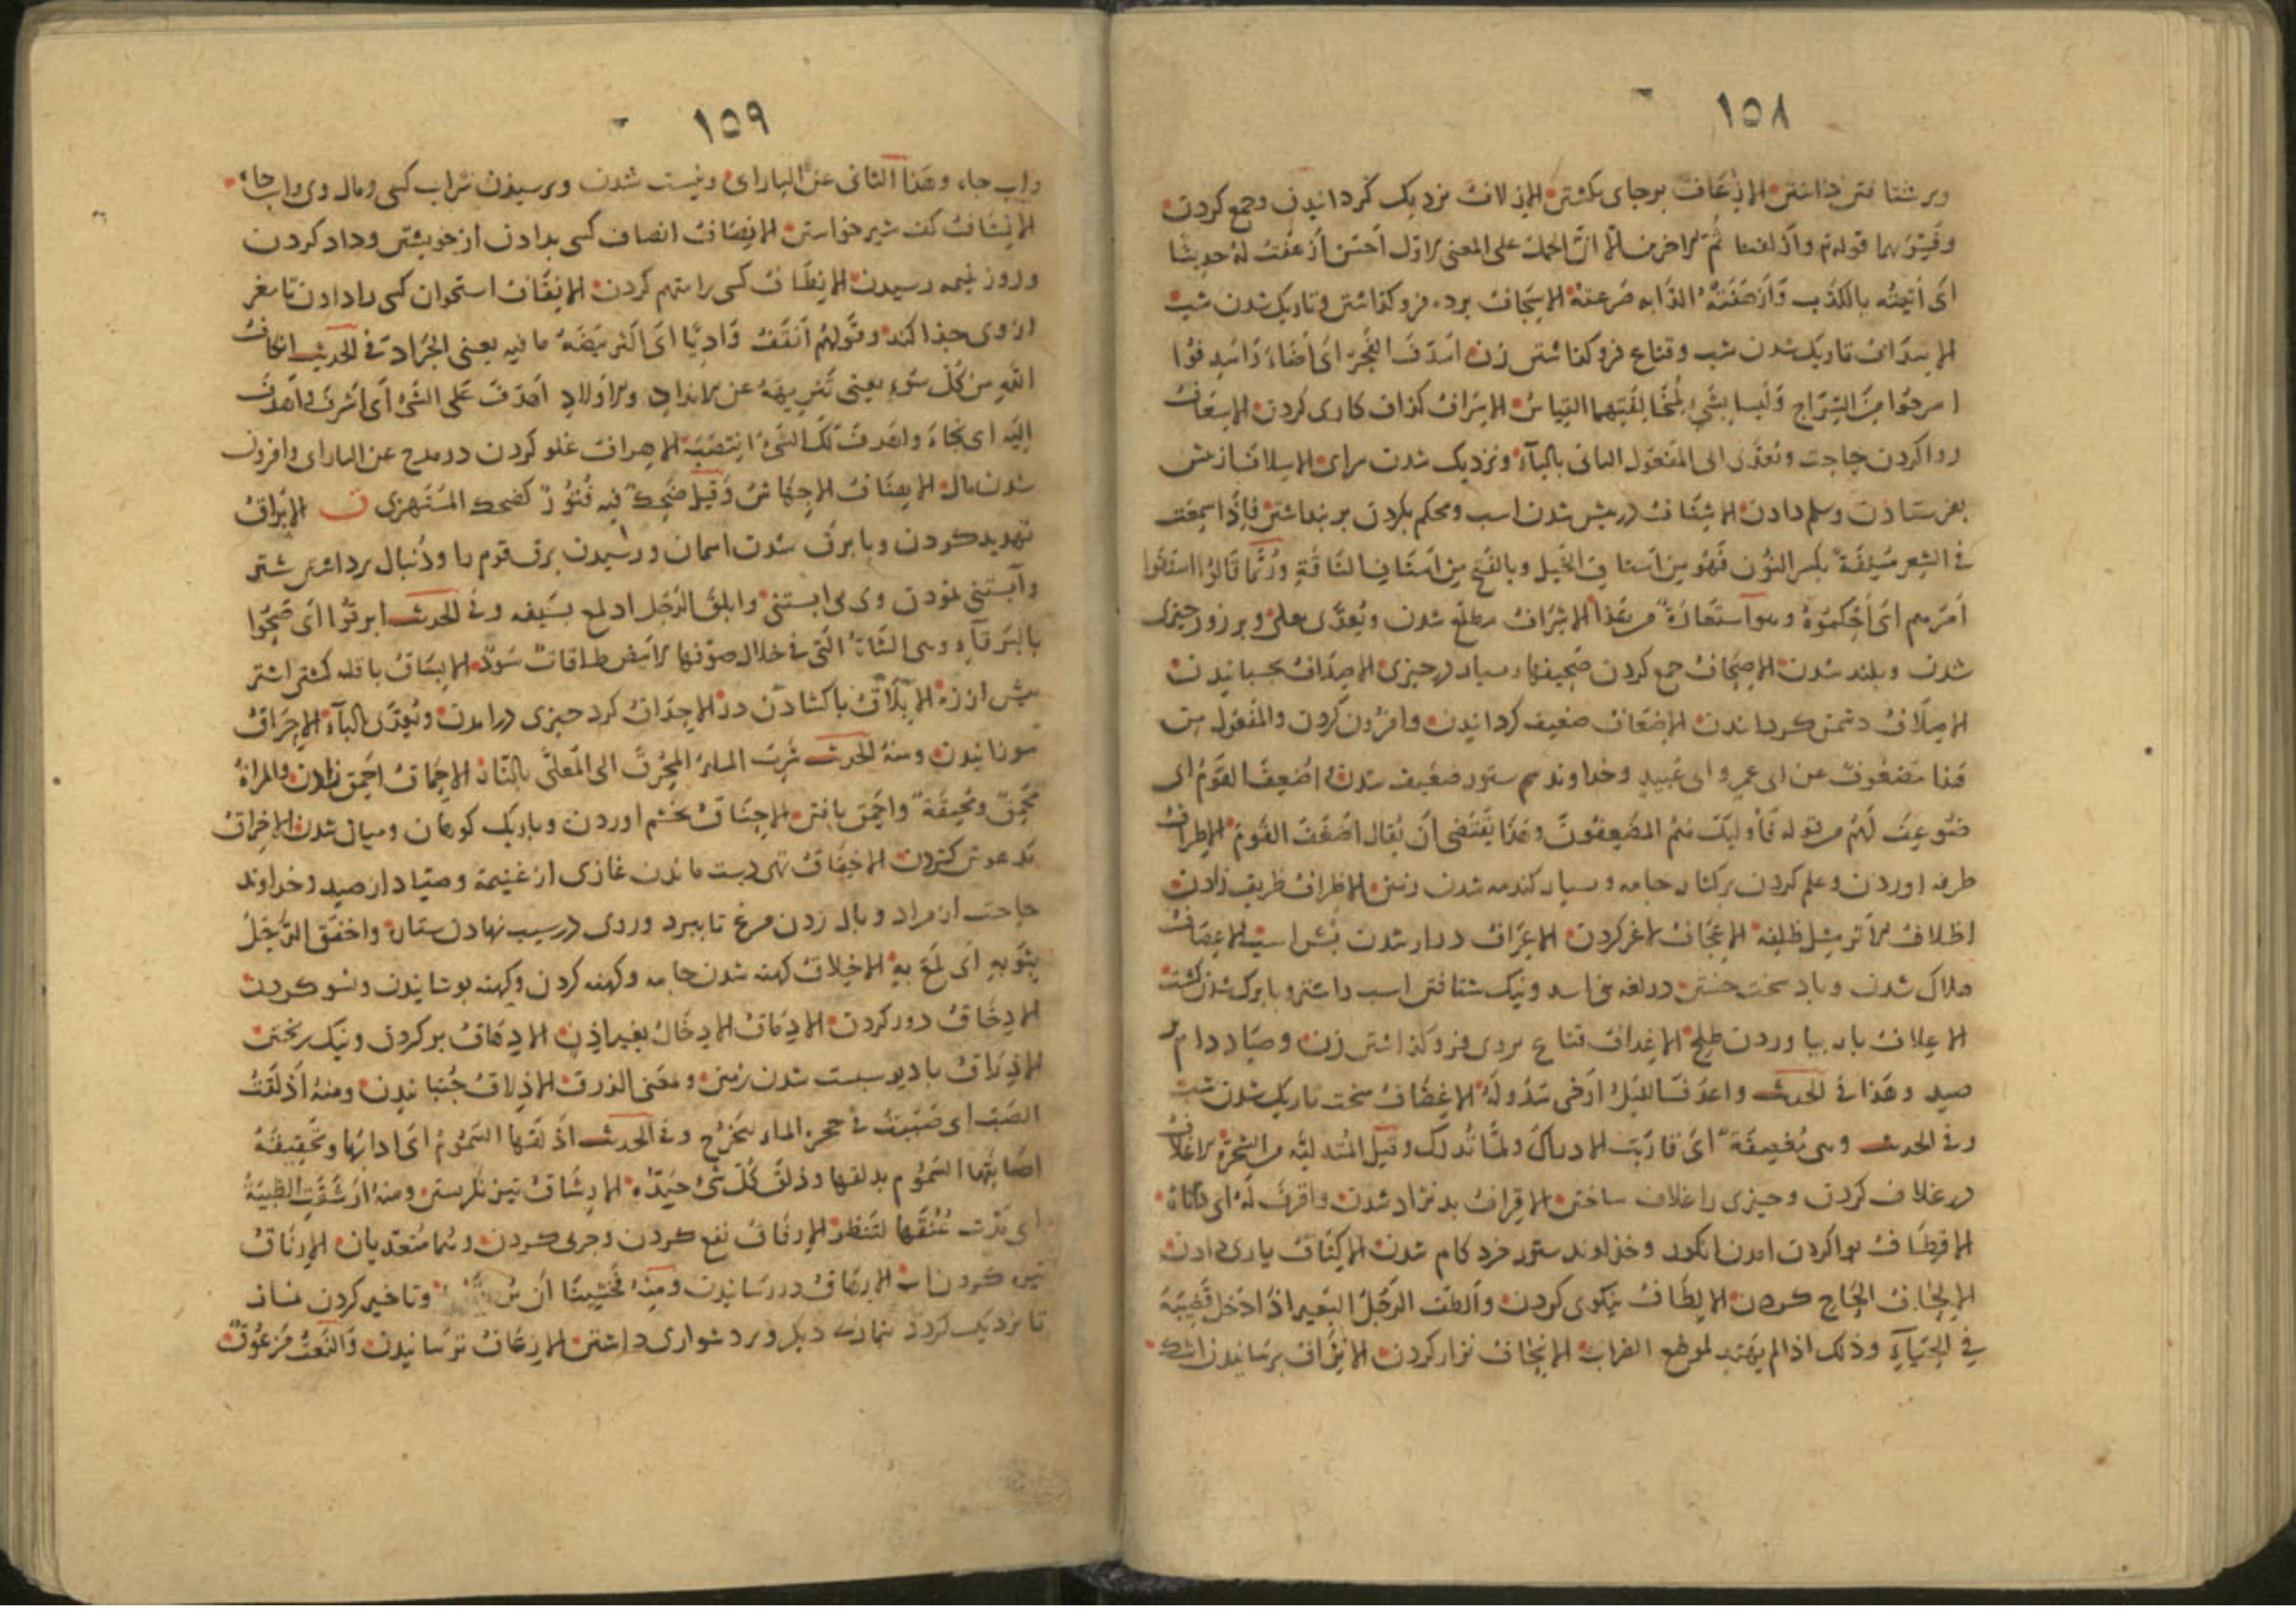 ١٥٨
وبر شتافتن داشتن الإذعاف برجای بکشتن الإزلاف نزدیک گردانیدن وجمع کردن
وفسر بهما قوله تم وأزلفنا ثم الآخرین الا ان الحمل على المعنى الاول أحسن أزعفت له حدیثا
أی أتیته بالکذب وأزعفته الدابه صرعته الإسجاف پرده فرو گذاشتن وتاریک شدن شب
الإسداف تاریک شدن شب وقناع فرو گذاشتن زن أسدف الفجر أی أضاء وأسدفوا
أسرجوا من السراج ولیسا بشیء لمخالفتهما القیاس الإسراف گذاف کاری کردن الإسعاف
روا کردن حاجت وتعدى الى المفعول الثانی بالباء ونزدیک شدن سرای الإسلاف از پیش
بفرستادن وسلم دادن الإسناف در پیش شدن اسب ومحکم بکردن بر بنداشتن فإذا سمعت
فی الشعر مسنفة بکسر النون فهو من أسناف الخیل وبالفتح من أسناف الناقة وربما قالوا أسنفوا
أمرهم أی أحکموه وهو استعارة من هذا الإشراف مطلع شدن ویعدى بعلى وبر زور چیزی
شدن وبلند شدن الإصحاف جمع کردن صحیفها وبسیار در چیزی الإصداف بچسبانیدن
الإصلاف دشمن گردانیدن الإضعاف ضعیف گردانیدن وافزون کردن والمفعول من
هذا مضعوف عن ابی عمرو وابی عبید وخداوند ستور ضعیف شدن أضعف القوم أی
ضوعف لهم من قوله فأولئک هم المضعفون وهذا یقتضی أن یقال أضعف القوم الإطراف
طرفه اوردن وعلم کردن بر کنار جامه وبسیار کندمه شدن زمین الإظراف ظریف زادن
اظلاف الاثر مثل ظلفه الإعجاف لاغر کردن الإعراف دراز شدن بش اسب الإعصاف
هلاک شدن وباد سخت جستن در لغه بنی اسد ونیک شتافتن اسب داشتن وبا برک شدن کشت
الإعلاف بار بیاوردن طلح الإغداف قناع بروی فرو گذاشتن زن وصیاد دام بر
صید وهذا فی الحدیث واغدف اللیل أرخى سدوله الإغضاف سخت تاریک شدن شب
وفی الحدیث وهی مغضفة أی قاربت الإدراک ولما تدرک وقیل المتدلیة من الشجرة الإغلاف
در غلاف کردن وچیزی را غلاف ساختن الإقراف بد نژاد شدن واقرف له أی داناه
الإقطاف بواکردن امدن انکور وخداوند ستور خرد کام شدن الإکناف یاری دادن
الإلحاف الحاح کردن الإلطاف نیکوی کردن وألطف الرجل البعیر اذا ادخل قضیبه
فی الحیاء وذلک اذا لم یهتد لموضع الضراب الإنحاف نزار کردن الإنزاف برسانیدن اشک
١٥٩
واب چاه وهذا الثانی عن البارای ونیست شدن وبرسیدن شراب کسی ومال وی واب چاه
الإنشاف کف شیر خواستن الإنصاف انصاف کسی بدادن از خویشتن وداد کردن
وروز بنیمه رسیدن الإنطاف کسی را متهم کردن الإنقاف استخوان کسی را دادن تا مغز
از وی جذا کند وقولهم أنقف وادیا أی أکثر بیضه ما فیه یعنی الجراد فی الحدیث إنکاف
الله من کل سوء یعنی تنزیهه عن الانداد والاولاد أهدف على الشیء أی أشرف وأهدف
إلیه أی لجاء وأهدف لک الشیء انتصب الإهراف غلو کردن در مدح عن البارای وافزون
شدن مال الإهناف الإجهاش وقیل ضحک فیه فتور کضحک المستهزئ ق الإبراق
تهدید کردن وبا برق شدن اسمان ورسیدن برق قوم را ودنبال برداشتن شتر
وآبستنی نمودن وی بی ابستنی وابلق الرجل اد لمع بسیفه وفی الحدیث ابرقوا أی ضحوا
بالبرقاء وهی الشاة التی فی خلال صوفها الابیض طاقات سود الإبساق باقله گشتن اشتر
پیش از زه الإبلاق باکشادن در الإحداق گرد چیزی درامدن ویعدى بالباء الإحراق
سوزانیدن ومنه الحدیث شرب الماء المحرق الى المغلى بالنار الإحماق احمق زادن والمراة
محمق ومحمقة واحمق یافتن الإحناق بخشم اوردن وباریک کوهان ومیان شدن الإخراق
مدهوش کردن الإخفاق تهی دست ماندن غازی از غنیمة وصیاد از صید وخداوند
حاجت از مراد وبال زدن مرغ تا ببرد وروی در سیب نهادن ستاره واخفق الرجل
بثوبه أی لمع به الإخلاق کهنه شدن جامه وکهنه کردن وکهنه پوشانیدن ونسو کردن
الإدحاق دور کردن الإدماق الإدخال بغیر اذن الإدهاق پر کردن ونیک ریختن
الإذراق با دیو سبست شدن زمین ومعنى الذرق الإذلاق جنبانیدن ومنه أذلقت
الضب أی صببت فی جحره الماء لیخرج وفی الحدیث أذلقها السموم أی أدارها وتحقیقه
أصابتها السموم بدلقها وذلق کل شیء حده الإرشاق تیز نگریستن ومنه أرشقت الظبیة
أی مدت عنقها لتنظر الإرفاق نفع کردن وجری کردن وهما متعدیان الإرناق
تیره کردن اب الإرهاق در رسانیدن ومنه فخشینا أن یر وتاخیر کردن نماز
تا نزدیک گردد نماز دیگر وبر دشواری داشتن الإزعاق ترسانیدن والنعت مزعوق